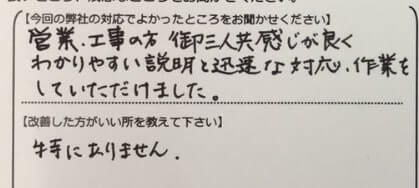 【今回の弊社の対応でよかったところをお聞かせください】
営業、工事の方 御三人共感じが良く
わかりやすい説明と迅速な対応、作業を
していただけました。
【改善した方がいい所を教えて下さい】
特にありません.